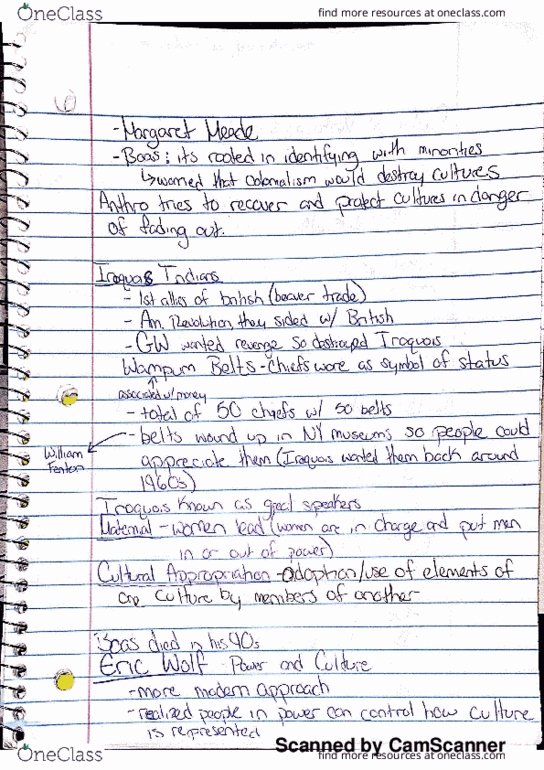 OneClass
find more resources at oneclass.com
- Margaret Meade
- Boas: its rooted in identifying with minorities
↳ worried that colonialism would destroy cultures
Anthro tries to recover and protect cultures in danger
of fading out.
Iroquois Indians
- 1st allies of british (beaver trade)
- Am. Revolution, they sided w/ British
- GW wanted revenge so destroyed Iroquois
Wampum Belts - Chiefs wore as symbol of status
associated w/ money
- total of 50 chiefs w/ 50 belts
- belts wound up in NY museums so people could
William
Fenton
appreciate them (Iroquois wanted them back around
1960s)
Iroquois known as great speakers
Maternal - women lead (women are in charge and put men
in or out of power)
Cultural Appropriation - adoption/use of elements of
one culture by members of another
Boas died in his 90s
Eric Wolf - Power and Culture
- more modern approach
- realized people in power can control how culture
is represented
Scanned by CamScanner
OneClass
find more resources at oneclass.com